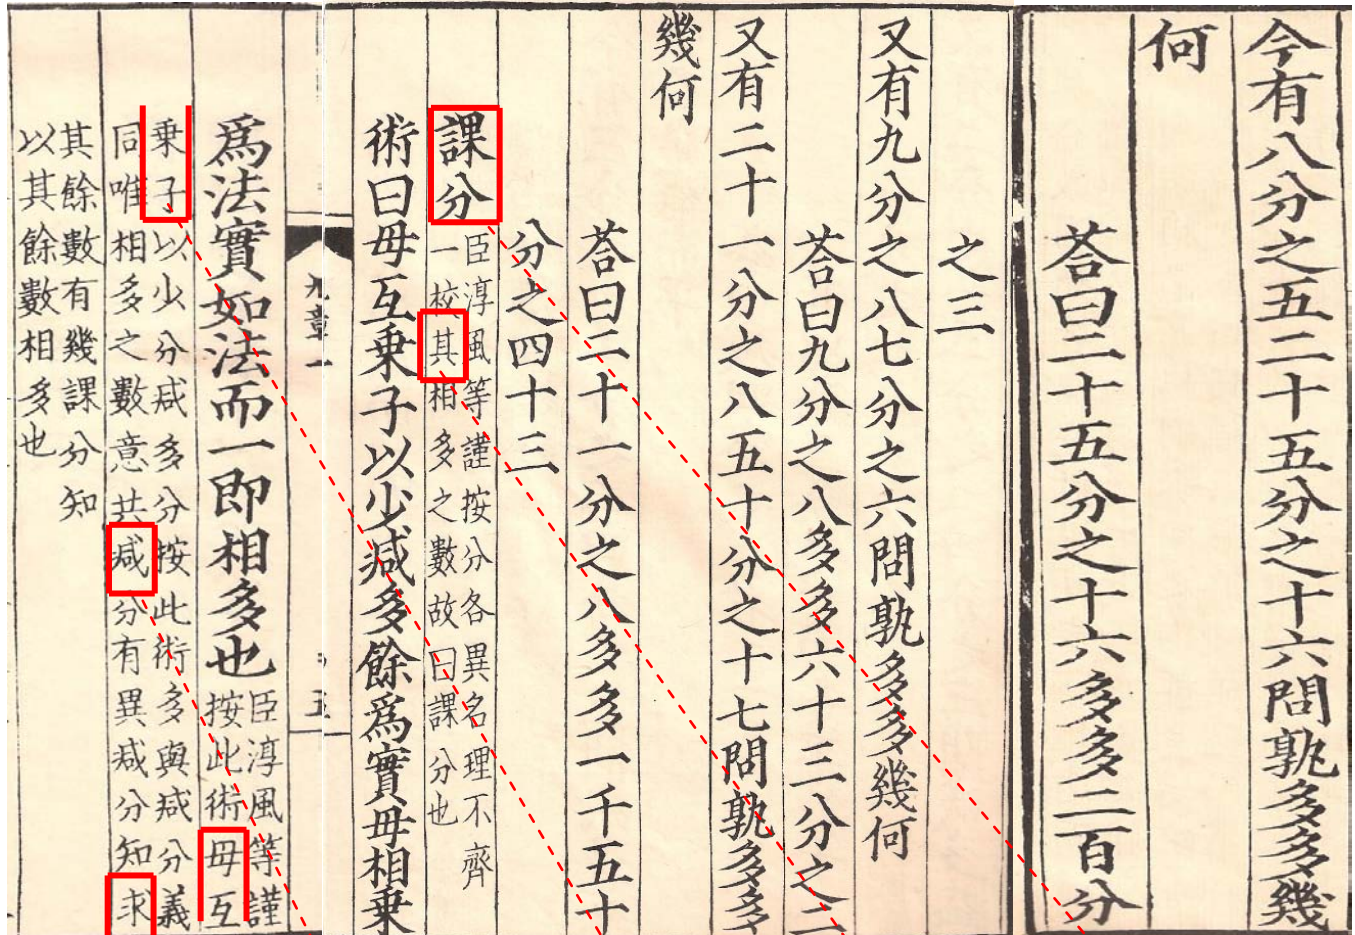 今有八分之五二十五分之十六問孰多多幾
何
荅曰二十五分之十六多多二百分
之三
又有九分之八七分之六問孰多多幾何
荅曰九分之八多多六十三分之二
又有二十一分之八五十分之十七問孰多多
幾何
荅曰二十一分之八多多一千五十
分之四十三
課分
臣淳風等謹按分各異名理不齊
一校其相多之數故曰課分也
術曰母互乗子以少减多餘爲實母相乗
九章一 五
爲法實如法而一即相多也
臣淳風等謹
按此術母互
乗子以少分减多分按此術多與减分義
同唯相多之數意共减分有異减分知求
其餘數有幾課分知
以其餘數相多也